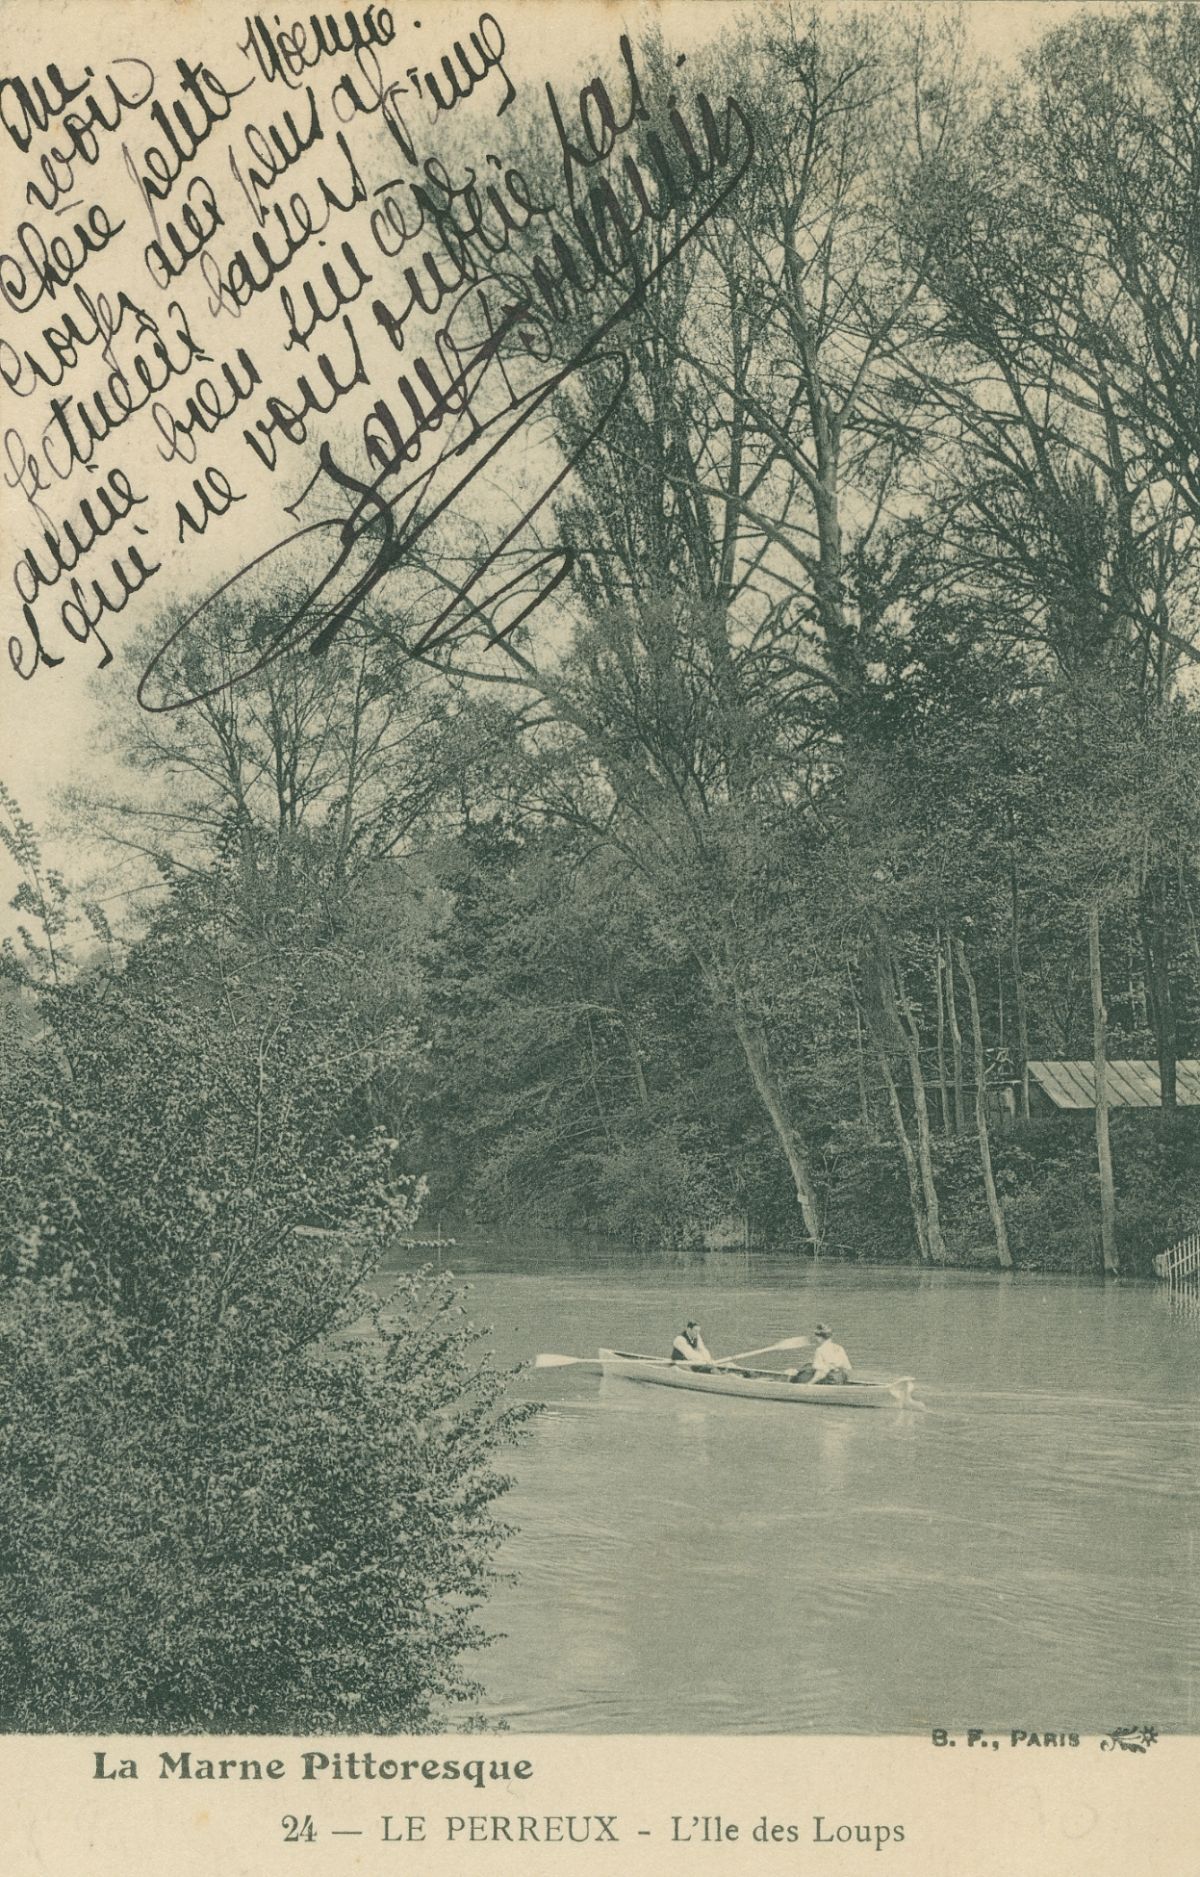 Au
revoir
chère petite
croyez aux plus af-
fectueux baisers d'une
amie bien sincère
et qui ne vous oublie pas.
B. F., PARIS
La Marne Pittoresque
24 — LE PERREUX - L'Ile des Loups